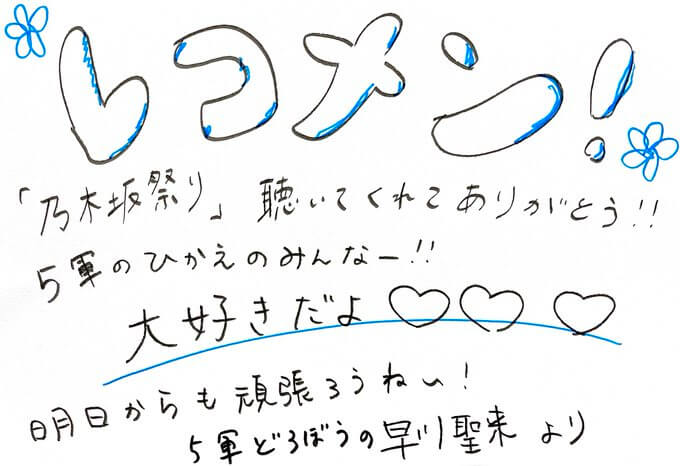 レコメン!
「乃木坂祭り」聴いてくれてありがとう!!
5軍のひかえのみんなー!!
大好きだよ♡♡♡
明日からも頑張ろうねぃ!
5軍どろぼうの早川聖来より